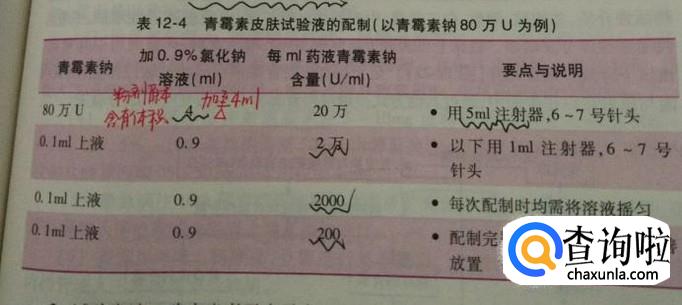 表 12-4 青霉素皮肤试验液的配制(以青霉素钠 80 万 U 为例)
青霉素钠 加 0.9%氯化钠溶液(ml) 每 ml 药液青霉素钠含量(U/ml) 要点与说明
粉剂 本 加至4ml
含有体积
80 万 U 4 20 万 • 用 5ml 注射器,6～7 号针头
0.1ml 上液 0.9 2 万 • 以下用 1ml 注射器,6～7 号
针头
0.1ml 上液 0.9 2000 • 每次配制时均需将溶液摇匀
0.1ml 上液 0.9 200 • 配制完
放置
查询啦
chaxunla.com